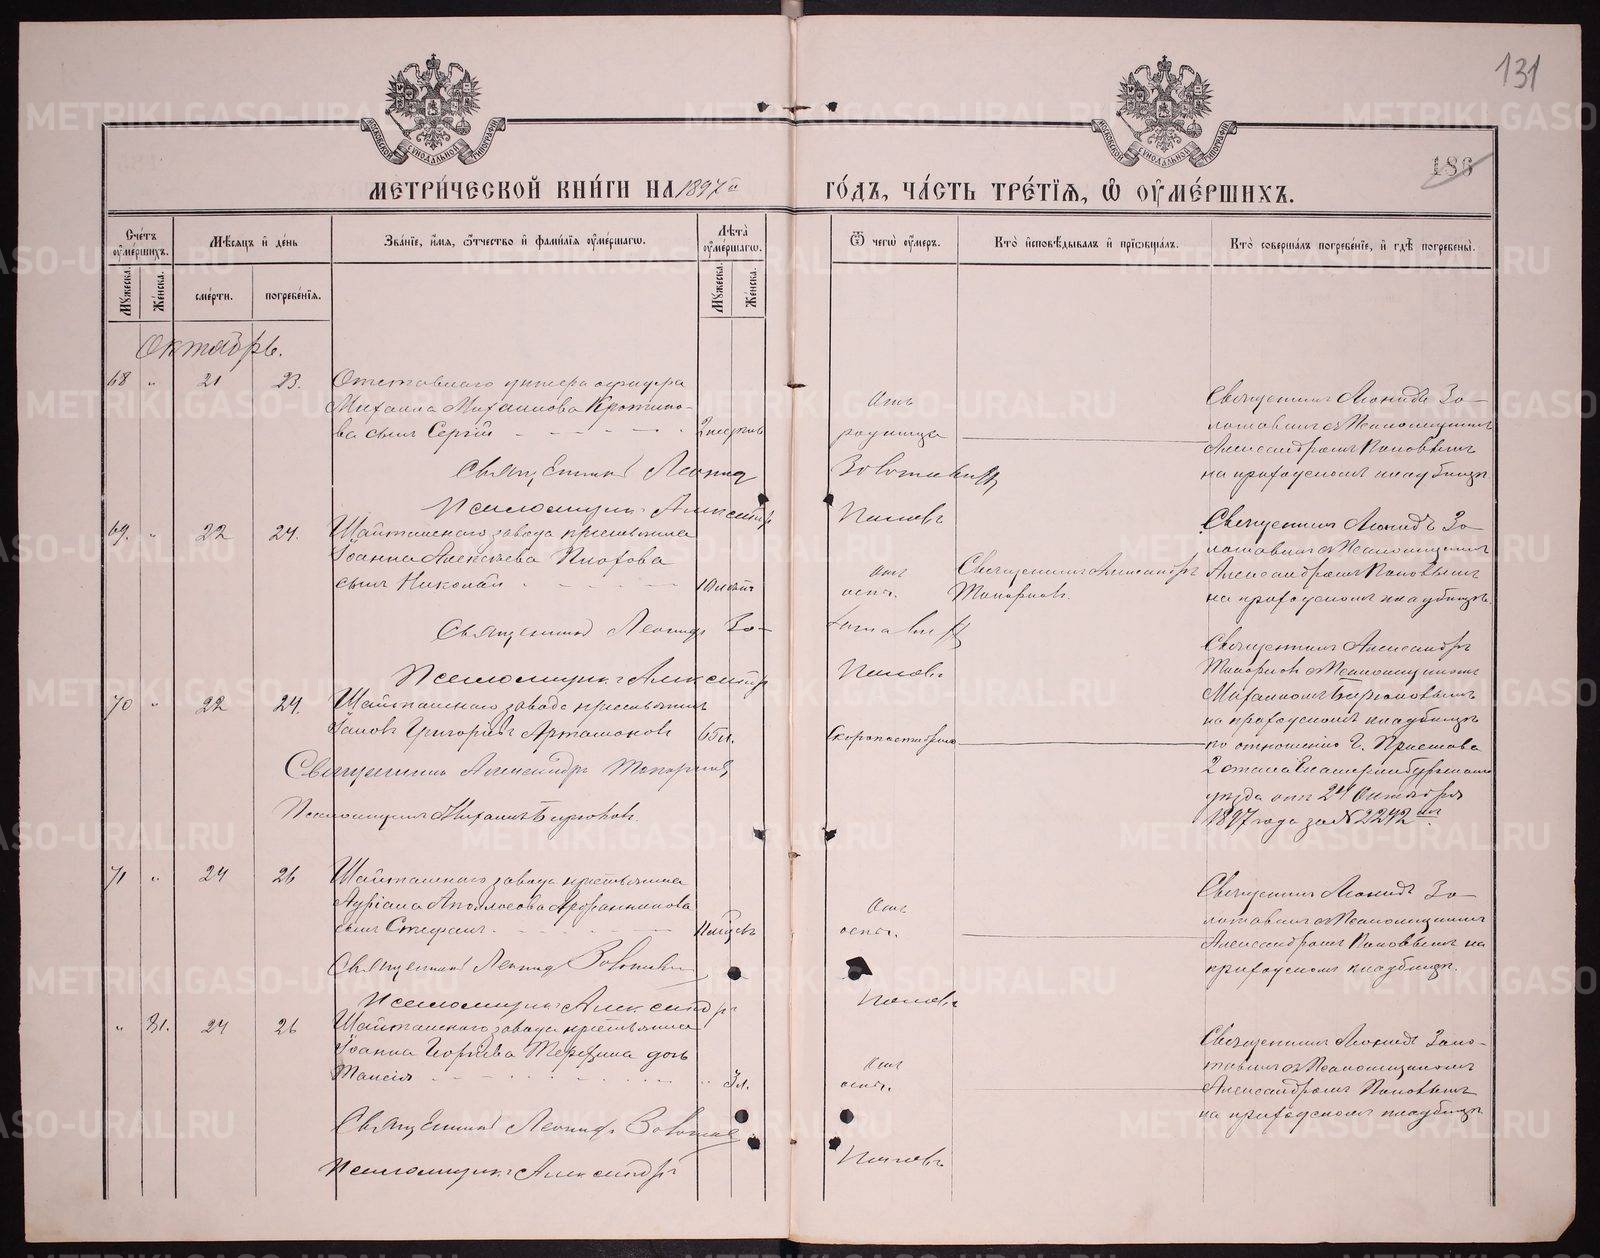 131
186
МЕТРИ́ЧЕСКОЙ КНИ́ГИ НА 1897 й
ГО́ДЪ, ЧА́СТЬ ТРЕ́ТІѦ, Ѽ ОУМЕ́РШИХЪ.
Сче́тъ оумершихъ.
Мѣ́сяцъ и де́нь
Зва́нїе, и́мя, ѻ҆́тчество и фами́лїя оуме́ршагѡ.
Лѣта̀ оуме́ршагѡ.
Ѿ чегѡ̀ оу́меръ.
Кто̀ и҆сповѣ́дывалъ и҆ прїѡбща́лъ.
Кто̀ соверша́лъ погребе́нїе, и҆ гдѣ̀ погребены̀.
Мужеска.
Женска.
сме́рти.
погребе́нїя.
Мужеска.
Женска.
Октябрь.
68 " 21 23.
Отставнаго унтеръ офицера
Михаила Михаилова Кротико-
ва сынъ Сергій
Отъ
родимца
Священникъ Леонидъ Зо-
лотавинъ съ Псаломщикомъ
Александромъ Поповымъ
на приходскомъ кладбищѣ
Священникъ Леонид Золотавин
Псаломщикъ Александръ Поповъ
69. " 22 24.
Шайтанскаго завода крестьянина
Іоанна Алексѣева Плохова
сынъ Николай
10 лѣтъ
Отъ
оспы.
Священникъ Александръ
Топорковъ.
Священникъ Леонидъ Зо-
лотавинъ съ Псаломщикомъ
Александромъ Поповымъ
на приходскомъ кладбищѣ.
Священникъ Леонидъ Золотавин
Псаломщикъ Александръ Поповъ
70 " 22 24.
Шайтанскаго завода крестьянинъ
Іаковъ Григоріевъ Артамоновъ
65 л.
Скоропостижно
Священникъ Александръ
Топорковъ съ Псаломщикомъ
Михаиломъ Бирюковымъ
на приходскомъ кладбищѣ
по отношенію Г. Пристава
2 стана Екатеринбургскаго
уѣзда отъ 24 Октября
1897 года за № 2242 мъ
Священникъ Александръ Топорковъ
Псаломщикъ Михаилъ Бирюковъ
71 " 24 26
Шайтанскаго завода крестьянина
Адріана Аполлосова
сынъ Стефанъ.
Отъ
оспы.
Священникъ Леонидъ Зо-
лотавинъ съ Псаломщикомъ
Александромъ Поповымъ на
приходскомъ кладбищѣ.
Священникъ Леонид Золотавин
Псаломщикъ Александръ Поповъ
" 31. 24 26
Шайтанскаго завода крестьянина
Іоанна Георгіева Терехина дочь
Таисія
" 3 л.
Отъ
оспы.
Священникъ Леонидъ Золо-
тавинъ съ Псаломщикомъ
Александромъ Поповымъ
на приходскомъ кладбищѣ
Священникъ Леонидъ Золотав
Псаломщикъ Александръ Поповъ
METRIKI.GASO-URAL.RU